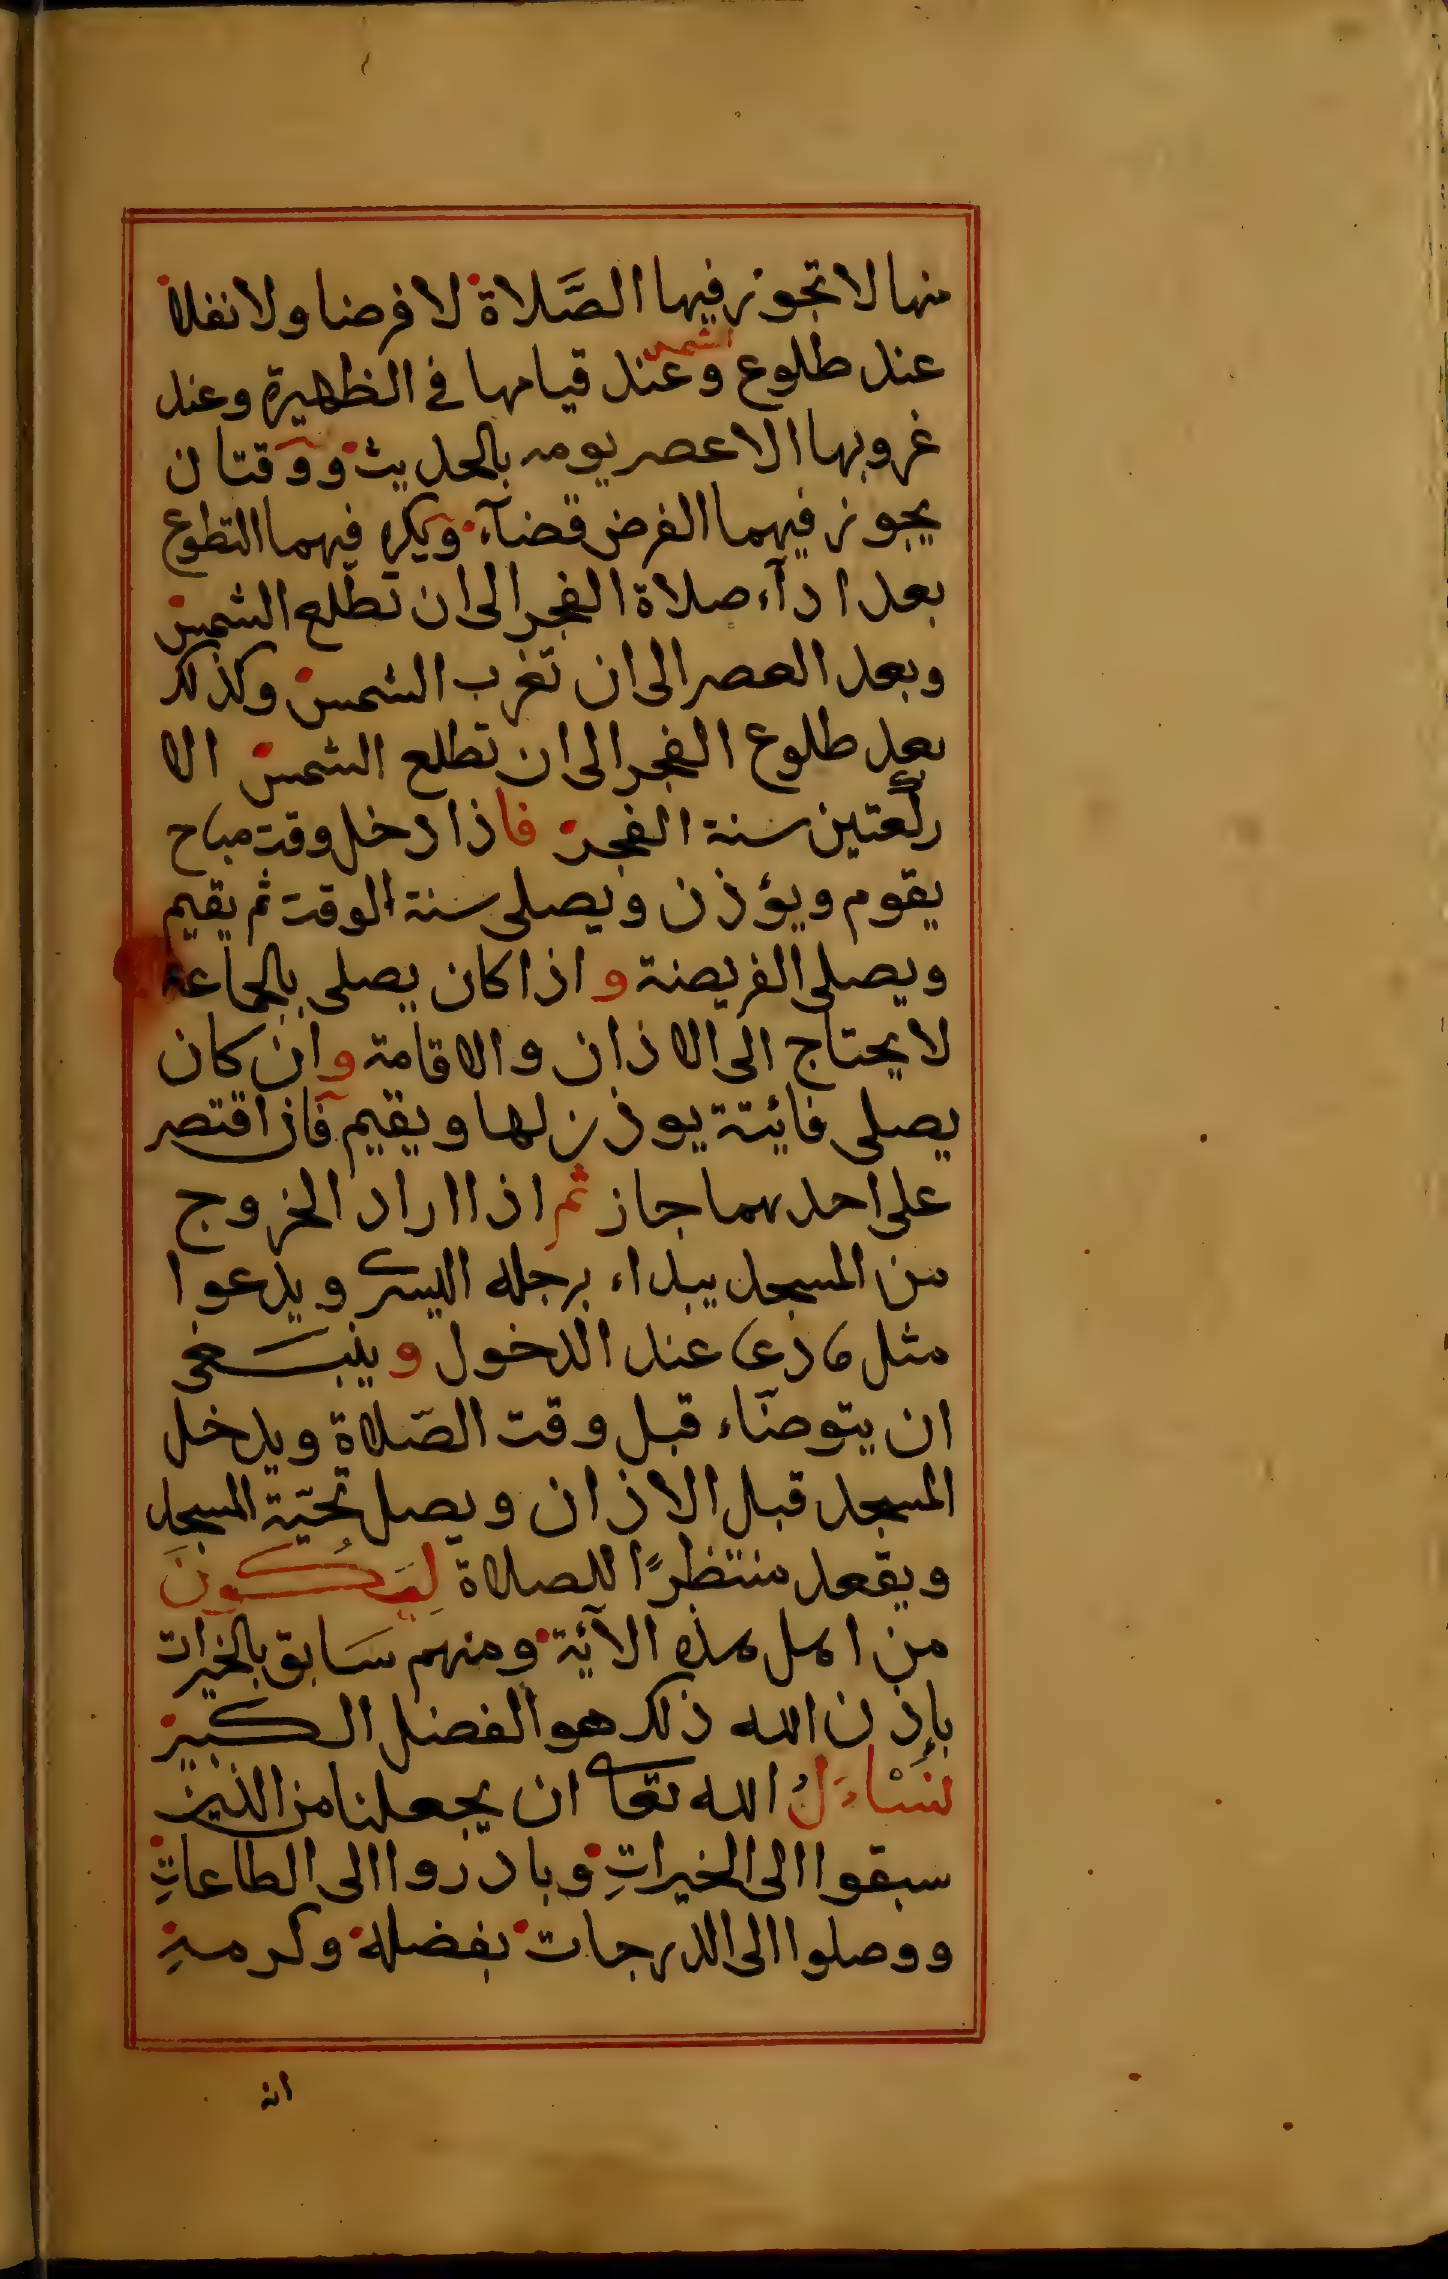 منها لا تجوز فيها الصَّلاة لا فرضا ولا نفلا
عند طلوع الشمس وعند قيامها في الظهيرة وعند
غروبها الا عصر يومه بالحديث ووقتان
يجوز فيهما الفرض قضآء ويكره فيهما التطوع
بعد ادآء صلاة الفجر الى ان تطلع الشمس
وبعد العصر الى ان تغرب الشمس وكذلك
بعد طلوع الفجر الى ان تطلع الشمس الا
ركعتين سنة الفجر فاذا دخل وقت مباح
يقوم ويؤذن ويصلى سنة الوقت ثم يقيم
ويصلى الفريضة واذا كان يصلى بالجماعة
لا يحتاج الى الاذان والاقامة وان كان
يصلى فائتة يوذن لها ويقيم فان اقتصر
على احدهما جاز ثم اذا اراد الخروج
من المسجد يبداء برجله اليسرى ويدعوا
مثل ما دعى عند الدخول وينبغى
ان يتوضّاء قبل وقت الصّلاة ويدخل
المسجد قبل الاذان ويصل تحيّة المسجد
ويقعد منتظرًا للصلاة لِيَكُونَ
من اهل هذه الآئية ومنهم سَابق بالخيرات
بإذن الله ذلك هو الفضل الكبير
نَسْاءَلُ الله تعا ان يجعلنا من الذين
سبقوا الى الخيراتِ وبادروا الى الطاعاتِ
ووصلوا الى الدرجات بفضله وكرمهِ
انه